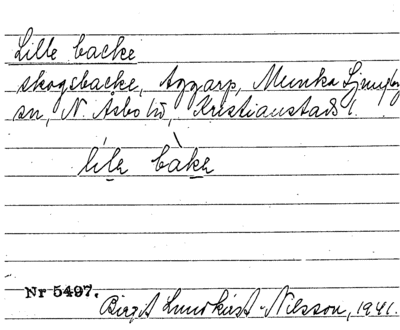 Lille backe
skogsbacke, Aggarp, Munka Ljungby
sn, N. Åsbo hd, Kristianstads l.
lile bàke
Nr 5497.
Birgit Lundkvist-Nilsson, 1941.